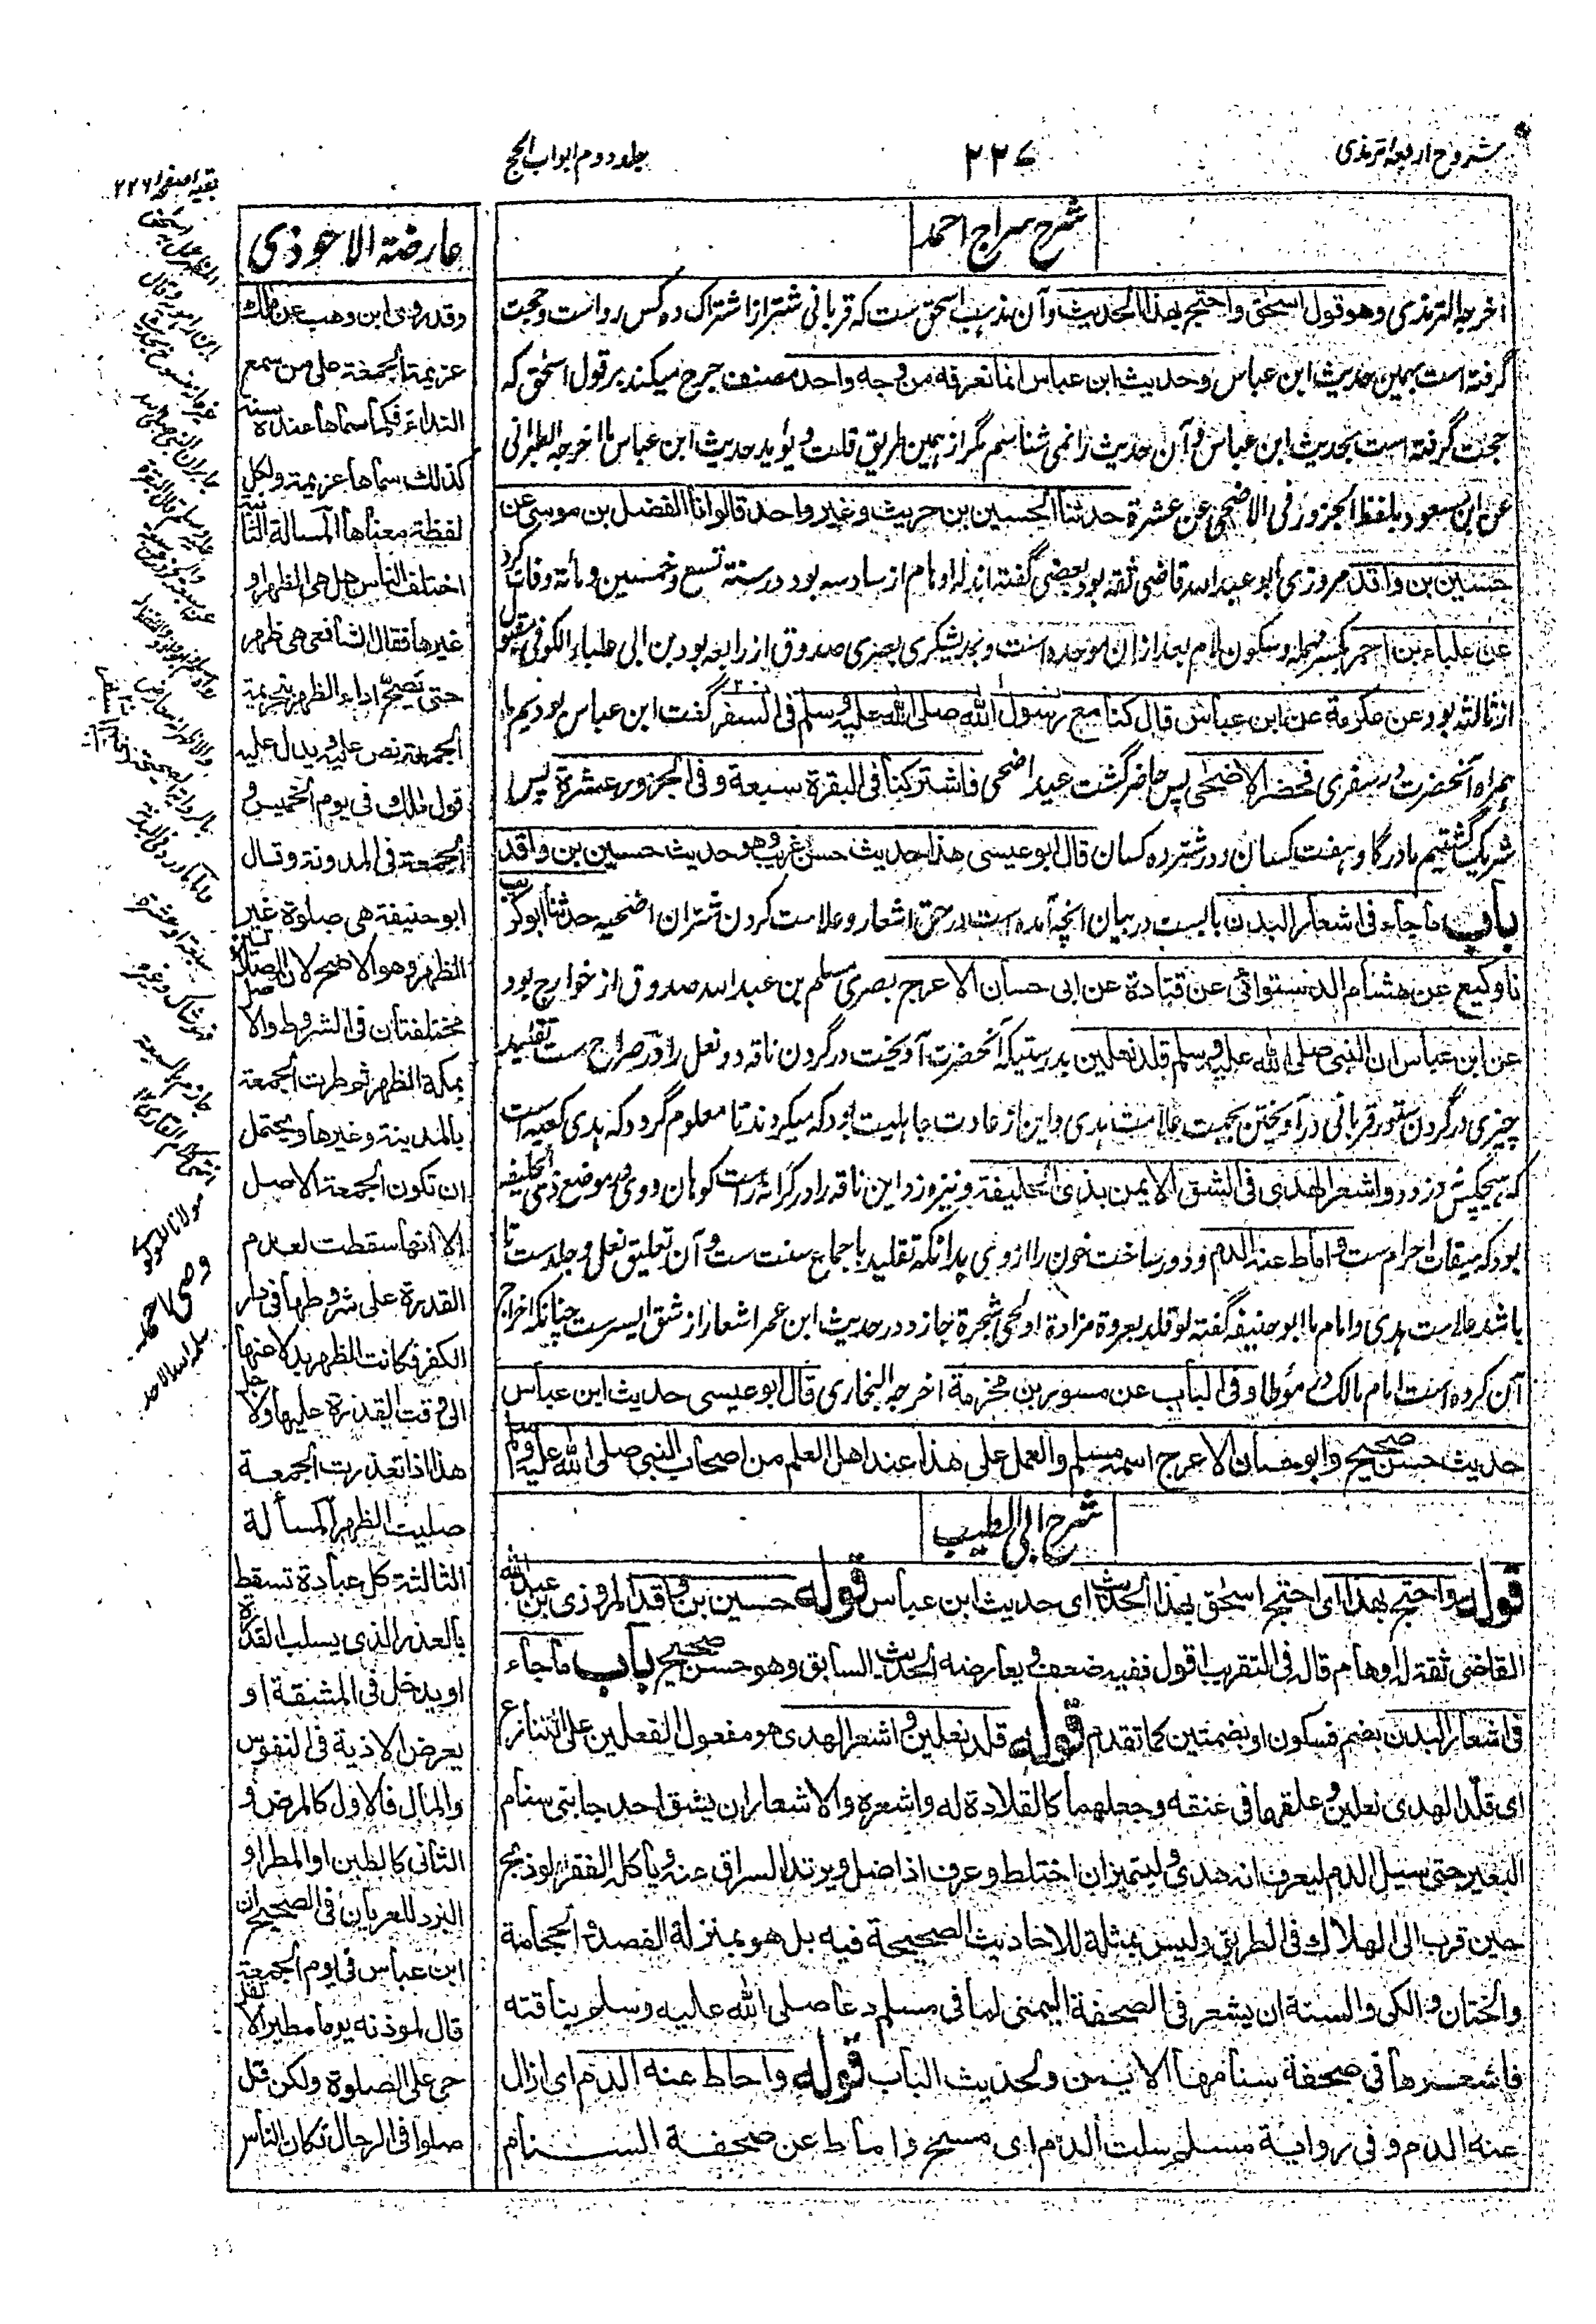 شروح اربعہ ترمذی
۲۲۷
جلد دوم ابواب الحج
شرح سراج احمد
اخرجه الترمذی وهو قول اسحٰق واحتج بهذا الحدیث وآن مذہب اسحق ست کہ قربانی شتر از اشتراک دہ کس رواست وحجت
گرفتہ است بہمین حدیث ابن عباس وحدیث ابن عباس انما نعرفه من وجه واحد مصنف جرح میکند بر قول اسحٰق کہ
حجت گرفتہ است بحدیث ابن عباس وآن حدیث را نمی شناسم مگر از ہمین طریق قلت ویؤید حدیث ابن عباس ما اخرجه الطبرانی
عن ابن مسعود بلفظ الجزور فی الاضحی عن عشرة حدثنا الحسین بن حریث وغیر واحد قالوا نا الفضل بن موسی عن
حسین بن واقد مروزی ابو عبد اللہ قاضی ثقہ بود بعضی گفتہ اند لہ اوہام از سادسہ بود در سنة تسع وخمسین ومائة وفات کرد
عن علباء بن احمر بکسر مہملہ وسکون لام بعد ازان موحدہ است یشکری بصری صدوق از رابعہ بود بن ابی علباء الکوفی مقبول
از ثالثہ بود عن عکرمة عن ابن عباس قال کنا مع رسول الله صلی الله علیه وسلم فی السفر گفت ابن عباس بودیم ما
ہمراہ آنحضرت در سفری فحضر الاضحی پس حاضر گشت عید اضحی فاشترکنا فی البقرة سبعة وفی الجزور عشرة پس
شریک گشتیم ما در گاو ہفت کسان ودر شتر دہ کسان قال ابو عیسی هذا حدیث حسن غریب وهو حدیث حسین بن واقد
باب ما جاء فی اشعار البدن بابیست در بیان انچہ آمدہ است در حق اشعار وعلامت کردن شتران اضحیہ حدثنا ابو کریب
نا وکیع عن هشام الدستوائی عن قتادة عن ابی حسان الاعرج بصری مسلم بن عبد اللہ صدوق از خوارج بود
عن ابن عباس ان النبی صلی الله علیه وسلم قلد نعلین بدرستیکہ آنحضرت آویخت در گردن ناقہ دو نعل را در صراح ست تقلید
چیزی در گردن ستور قربانی در آویختن بجہت علامت ہدی واین از عادت جاہلیت بود کہ میکردند تا معلوم گردد کہ ہدی کعبہ است
کہ ہیچکس نہ دزدد واشعر الهدی فی الشق الایمن بذی الحلیفة ونیزہ زد این ناقہ را در کرانہ راست کوہان ووی در موضع ذی الحلیفہ
بود کہ میقات احرام ست واماط عنه الدم ودور ساخت خون را ازوی بدانکہ تقلید باجماع سنت ست وآن تعلیق نعل وجلد ست تا
باشد علامت ہدی وامام ما ابو حنیفہ گفتہ لو قلد بعروة مزادة او لحی شجرة جاز ودر حدیث ابن عمر اشعار از شق ایسر ست چنانکہ اخراج
آن کردہ است امام مالک در مؤطا وفی الباب عن مسور بن مخرمة اخرجه البخاری قال ابو عیسی حدیث ابن عباس
حدیث حسن صحیح وابو حسان الاعرج اسمه مسلم والعمل علی هذا عند اهل العلم من اصحاب النبی صلی الله علیه وسلم
شرح ابی الطیب
قوله واحتج بهذا ای احتج اسحٰق بهذا الحدیث ای حدیث ابن عباس قوله حسین بن واقد المروزی بن عبد الله
القاضی ثقة له اوهام قاله فی التقریب اقول ففیه ضعف ویعارضه الحدیث السابق وهو حسن صحیح باب ما جاء
فی اشعار البدن بضم فسکون او بضمتین کما تقدم قوله قلد نعلین واشعر الهدی هو مفعول الفعلین علی التنازع
ای قلّد الهدی نعلین وعلقهما فی عنقه وجعلهما کالقلادة له واشعره والاشعار ان یشق احد جانبی سنام
البعیر حتی یسیل الدم لیعرف انه هدی ولیتمیز ان اختلط وعرف اذا ضل ویرتد السراق عنه ویأکله الفقراء لو ذبح
حین قرب الی الهلاك فی الطریق ولیس بمثلة للاحادیث الصحیحة فیه بل هو بمنزلة الفصد والحجامة
والختان والکی والسنة ان یشعر فی الصحفة الیمنی لما فی مسلم دعا صلی الله علیه وسلم بناقته
فاشعرها فی صحفة سنامها الایمن ولحدیث الباب قوله واماط عنه الدم ای ازال
عنه الدم وفی روایة مسلم سلت الدم ای مسح واماط عن صحفة السنام
عارضة الاحوذی
وقد روی ابن وهب عن مالك
عزیمة الجمعة علی من سمع
النداء فکما سماها عنده سنة
کذلك سماها عزیمة ولکل
لفظة معناها المسألة الثانیة
اختلف الناس هل هی الظهر او
غیرها فقال الشافعی هی ظهر
حتی یصحّ اداء الظهر بتحریمة
الجمعة نص علیه ویدل علیه
قول مالك فی یوم الخمیس و
الجمعة فی المدونة وقال
ابو حنیفة هی صلوة غیر
الظهر وهو الاصح لان الصلاتین
مختلفتان فی الشروط والاصل
بمکة الظهر ثم طرت الجمعة
بالمدینة وغیرها ویحتمل
ان تکون الجمعة الاصل
الا انها سقطت لعدم
القدرة علی شروطها فی دار
الکفر فکانت الظهر بدلا عنها
الی وقت القدرة علیها ولاجل
هذا اذا تعذرت الجمعة
صلیت الظهر المسألة
الثالثة کل عبادة تسقط
بالعذر الذی یسلب القدرة
او یدخل فی المشقة او
یعرض الاذیة فی النفوس
والمال فالاول کالمرض و
الثانی کالطین او المطر او
البرد للعریان فی الصحیح ان
ابن عباس فی یوم الجمعة
قال لمؤذنه یوما مطیرا لا تقل
حی علی الصلوة ولکن قل
صلوا فی الرحال فکان الناس
بقیہ صفحہ ۲۲۶
مولانا
وصی احمد
سلمہ اللہ الاحد